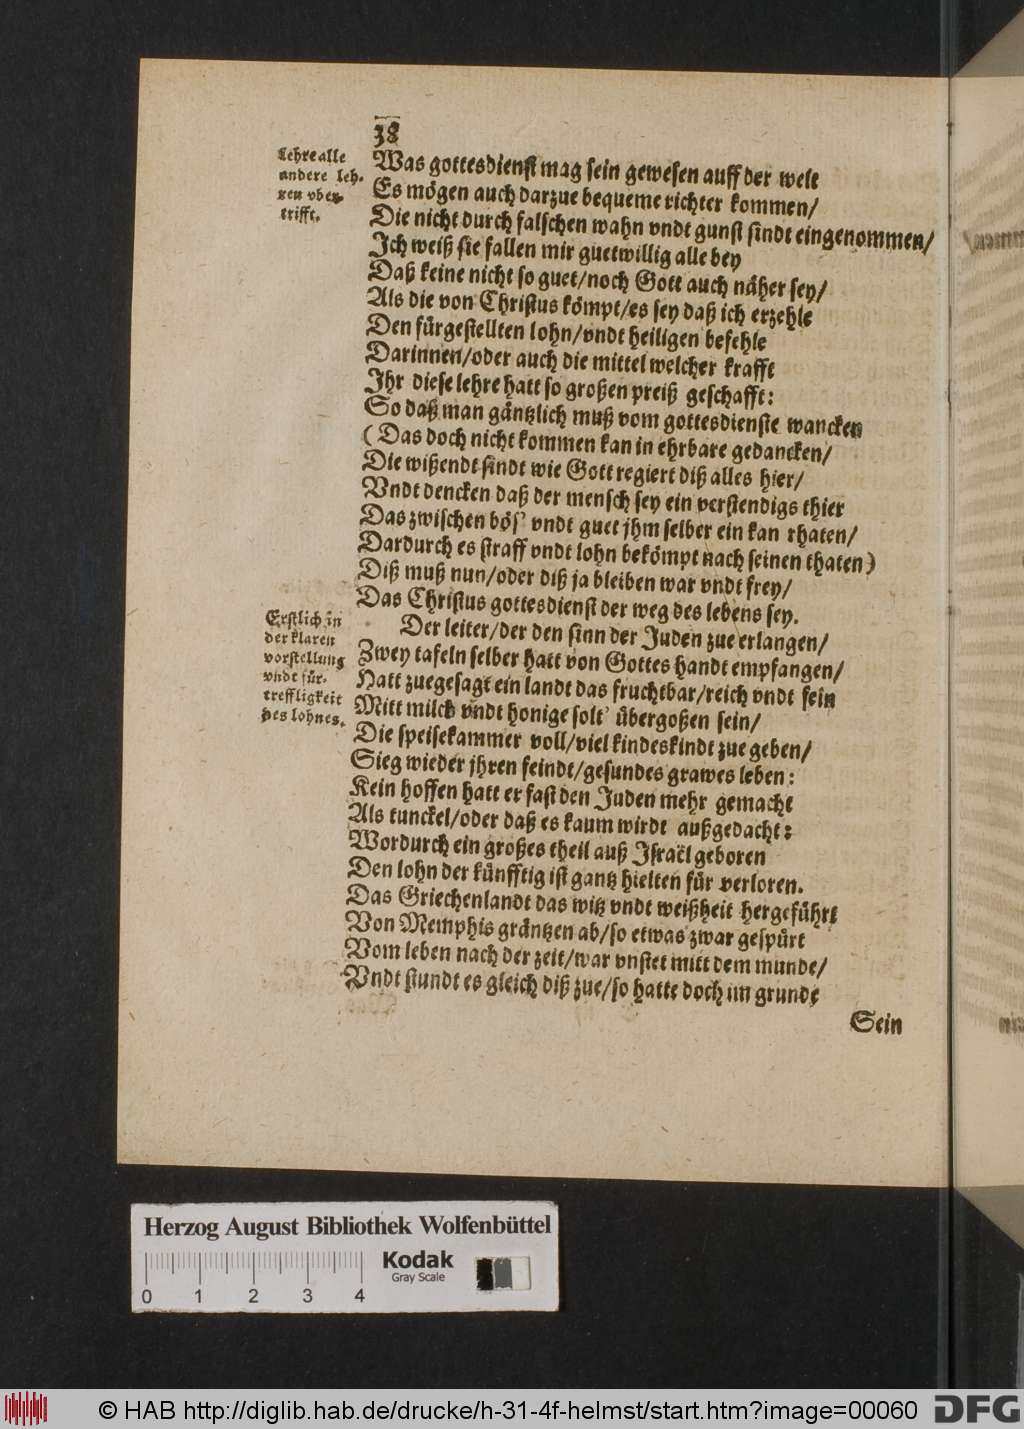 38
Lehre alle
andere leh-
ren vber-
trifft.
Was gottesdienst mag sein gewesen auff der welt
Es mögen auch darzue bequeme richter kommen/
Die nicht durch falschen wahn vndt gunst sindt eingenommen/
Ich weiß sie fallen mir guetwillig alle bey
Daß keine nicht so guet/noch Gott auch näher sey/
Als die von Christus kömpt/es sey daß ich erzehle
Den fürgestellten lohn/vndt heiligen befehle
Darinnen/oder auch die mittel welcher krafft
Ihr diese lehre hatt so großen preiß geschafft:
So daß man gäntzlich muß vom gottesdienste wancken
(Das doch nicht kommen kan in ehrbare gedancken/
Die wißendt sindt wie Gott regiert diß alles hier/
Vndt dencken daß der mensch sey ein verstendigs thier
Das zwischen böß' vndt guet jhm selber ein kan rhaten/
Dardurch es straff vndt lohn bekömpt nach seinen thaten)
Diß muß nun/oder diß ja bleiben war vndt frey/
Das Christus gottesdienst der weg des lebens sey.
Erstlich in
der klaren
vorstellung
vndt für-
treffligkeit
des lohnes.
Der leiter/der den sinn der Juden zue erlangen/
Zwey tafeln selber hatt von Gottes handt empfangen/
Hatt zuegesagt ein landt das fruchtbar/reich vndt fein
Mitt milch vndt honige solt' übergoßen sein/
Die speisekammer voll/viel kindeskindt zue geben/
Sieg wieder jhren feindt/gesundes grawes leben:
Kein hoffen hatt er fast den Juden mehr gemacht
Als tunckel/oder daß es kaum wirdt außgedacht:
Wordurch ein großes theil auß Israël geboren
Den lohn der künfftig ist gantz hielten für verloren.
Das Griechenlandt das witz vndt weißheit hergeführt
Von Memphis gräntzen ab/so etwas zwar gespürt
Vom leben nach der zeit/war vnstet mitt dem munde/
Vndt stundt es gleich diß zue/so hatte doch im grunde
Sein
Herzog August Bibliothek Wolfenbüttel
Kodak
Gray Scale
0 1 2 3 4
© HAB http://diglib.hab.de/drucke/h-31-4f-helmst/start.htm?image=00060
diglib
DFG